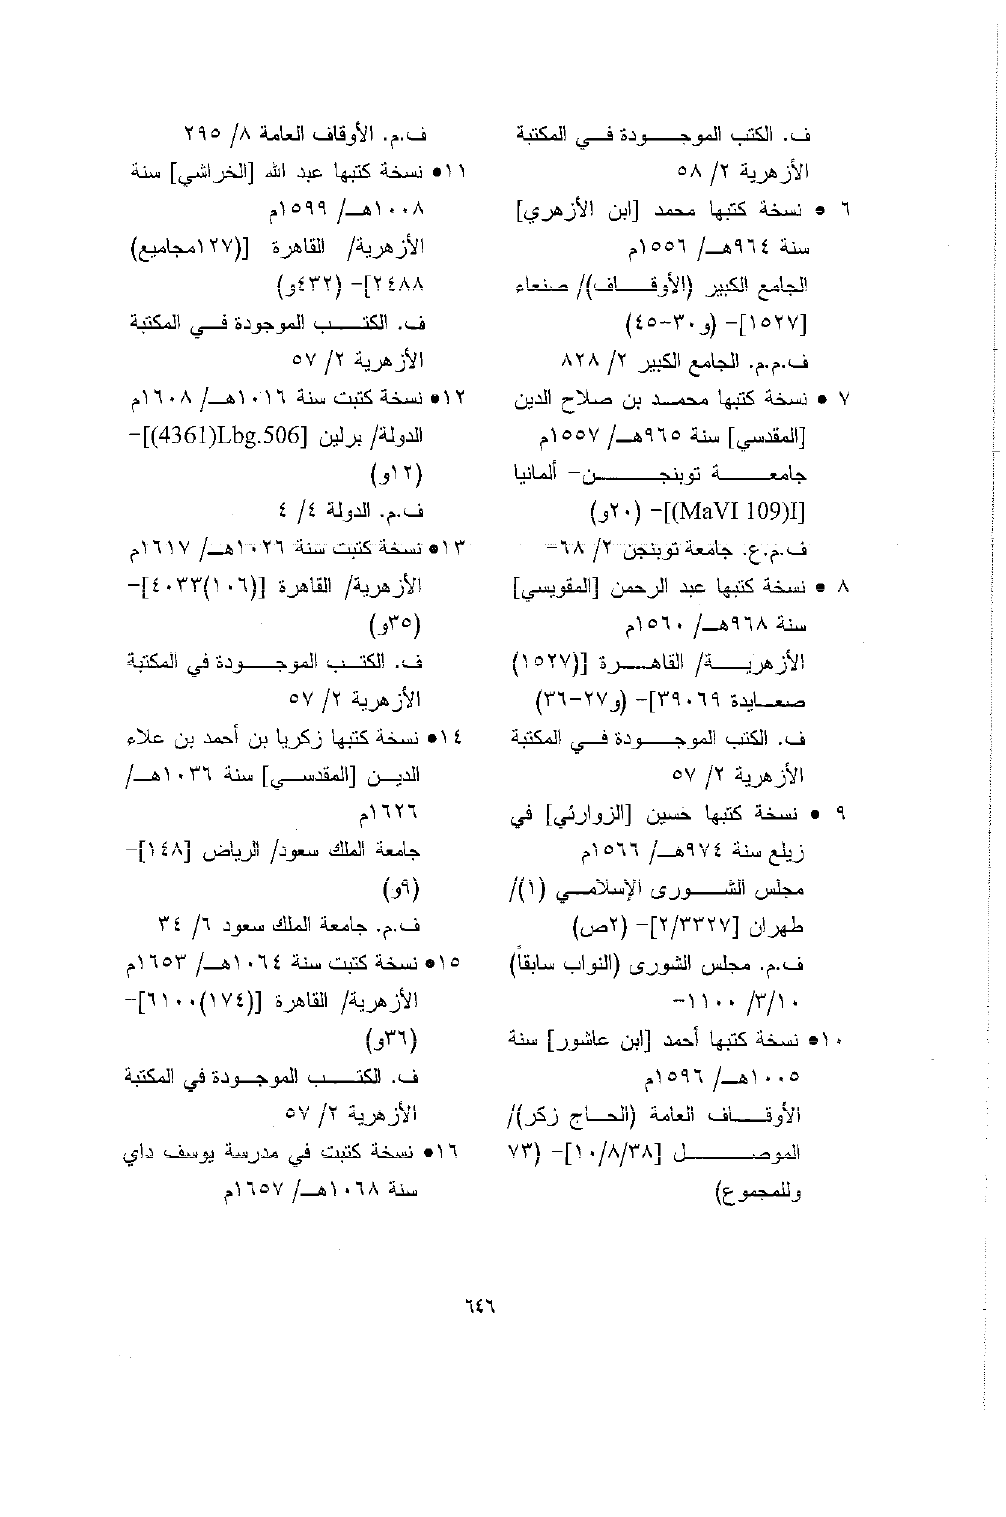 ف. الكتب الموجودة في المكتبة
الأزهرية ٢/ ٥٨
٦ • نسخة كتبها محمد [ابن الأزهري]
سنة ٩٦٤هـ/ ١٥٥٦م
الجامع الكبير (الأوقاف)/ صنعاء
[١٥٢٧]- (و٣٠-٤٥)
ف.م.م. الجامع الكبير ٢/ ٨٢٨
٧ • نسخة كتبها محمد بن صلاح الدين
[المقدسي] سنة ٩٦٥هـ/ ١٥٥٧م
جامعة توبنجن- ألمانيا
[MaVI 109)I)]- (٢٠و)
ف.م.ع. جامعة توبنجن ٢/ ٦٨-
٨ • نسخة كتبها عبد الرحمن [المقويسي]
سنة ٩٦٨هـ/ ١٥٦٠م
الأزهرية/ القاهرة [(١٥٢٧)
صعايدة ٣٩٠٦٩]- (و٢٧-٣٦)
ف. الكتب الموجودة في المكتبة
الأزهرية ٢/ ٥٧
٩ • نسخة كتبها حسين [الزوارئي] في
زيلع سنة ٩٧٤هـ/ ١٥٦٦م
مجلس الشورى الإسلامي (١)/
طهران [٢/٣٣٢٧]- (٢ص)
ف.م. مجلس الشورى (النواب سابقاً)
٣/١٠/ ١١٠٠-
١٠• نسخة كتبها أحمد [ابن عاشور] سنة
١٠٠٥هـ/ ١٥٩٦م
الأوقاف العامة (الحاج زكر)/
الموصل [١٠/٨/٣٨]- (٧٣
وللمجموع)
ف.م. الأوقاف العامة ٨/ ٢٩٥
١١• نسخة كتبها عبد الله [الخراشي] سنة
١٠٠٨هـ/ ١٥٩٩م
الأزهرية/ القاهرة [(١٢٧مجاميع)
٢٤٨٨]- (٤٣٢و)
ف. الكتب الموجودة في المكتبة
الأزهرية ٢/ ٥٧
١٢• نسخة كتبت سنة ١٠١٦هـ/ ١٦٠٨م
الدولة/ برلين [Lbg.506(4361)]-
(١٢و)
ف.م. الدولة ٤/ ٤
١٣• نسخة كتبت سنة ١٠٢٦هـ/ ١٦١٧م
الأزهرية/ القاهرة [(١٠٦)٤٠٣٣]-
(٣٥و)
ف. الكتب الموجودة في المكتبة
الأزهرية ٢/ ٥٧
١٤• نسخة كتبها زكريا بن أحمد بن علاء
الدين [المقدسي] سنة ١٠٣٦هـ/
١٦٢٦م
جامعة الملك سعود/ الرياض [١٤٨]-
(٩و)
ف.م. جامعة الملك سعود ٦/ ٣٤
١٥• نسخة كتبت سنة ١٠٦٤هـ/ ١٦٥٣م
الأزهرية/ القاهرة [(١٧٤)٦١٠٠]-
(٣٦و)
ف. الكتب الموجودة في المكتبة
الأزهرية ٢/ ٥٧
١٦• نسخة كتبت في مدرسة يوسف داي
سنة ١٠٦٨هـ/ ١٦٥٧م
٦٤٦